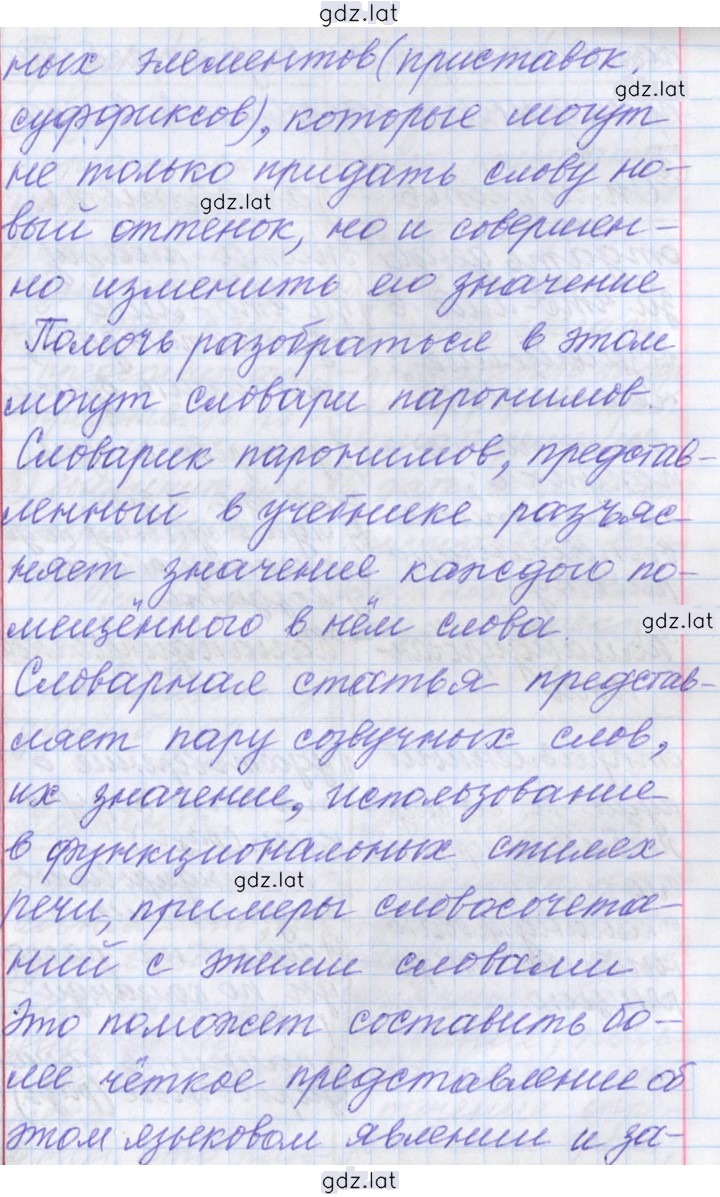 gdz.lat
ных элементов (приставок,
gdz.lat
суффиксов), которые могут
не только придать слову но-
gdz.lat
вый оттенок, но и совершен-
но изменить его значение
Помочь разобраться в этом
могут словари паронимов.
Словарик паронимов, представ-
ленный в учебнике разъяс-
няет значение каждого по-
мещённого в нём слова.
gdz.lat
Словарная статья представ-
ляет пару созвучных слов,
их значение, использование
в функциональных стилях
gdz.lat
речи, примеры словосочета-
ний с этими словами
Это поможет составить бо-
лее чёткое представление об
этом языковом явлении и за-
gdz.lat